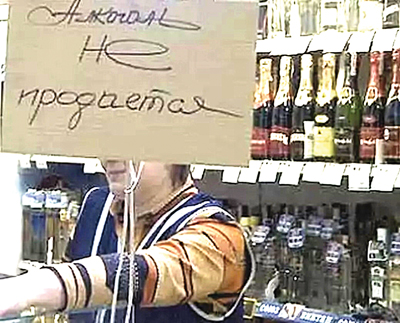 Алкоголь
не
продается